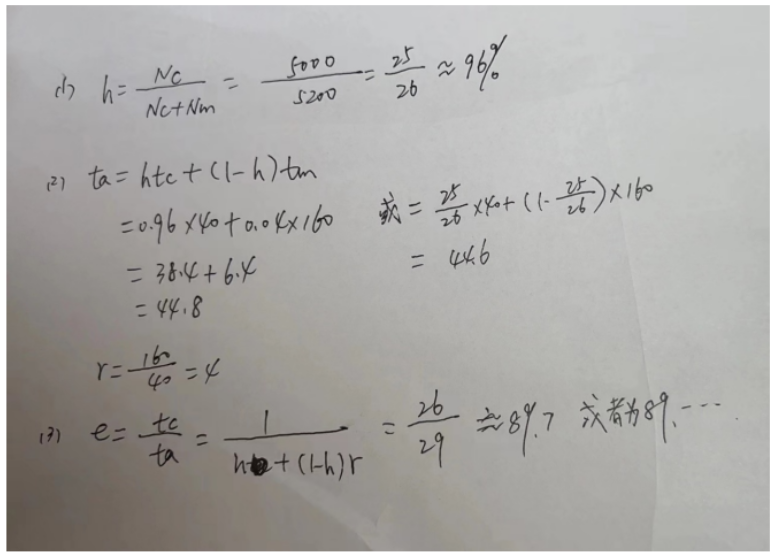 (1) h = Nc / (Nc+Nm) = 5000 / 5200 = 25/26 ≈ 96%
(2) ta = htc + (1-h)tm
= 0.96 × 40 + 0.04 × 160
= 38.4 + 6.4
= 44.8
或 = 25/26 × 40 + (1 - 25/26) × 160
= 44.6
r = 160/40 = 4
(3) e = tc/ta = 1 / (h + (1-h)r) = 26/29 ≈ 89.7 或者为89.……